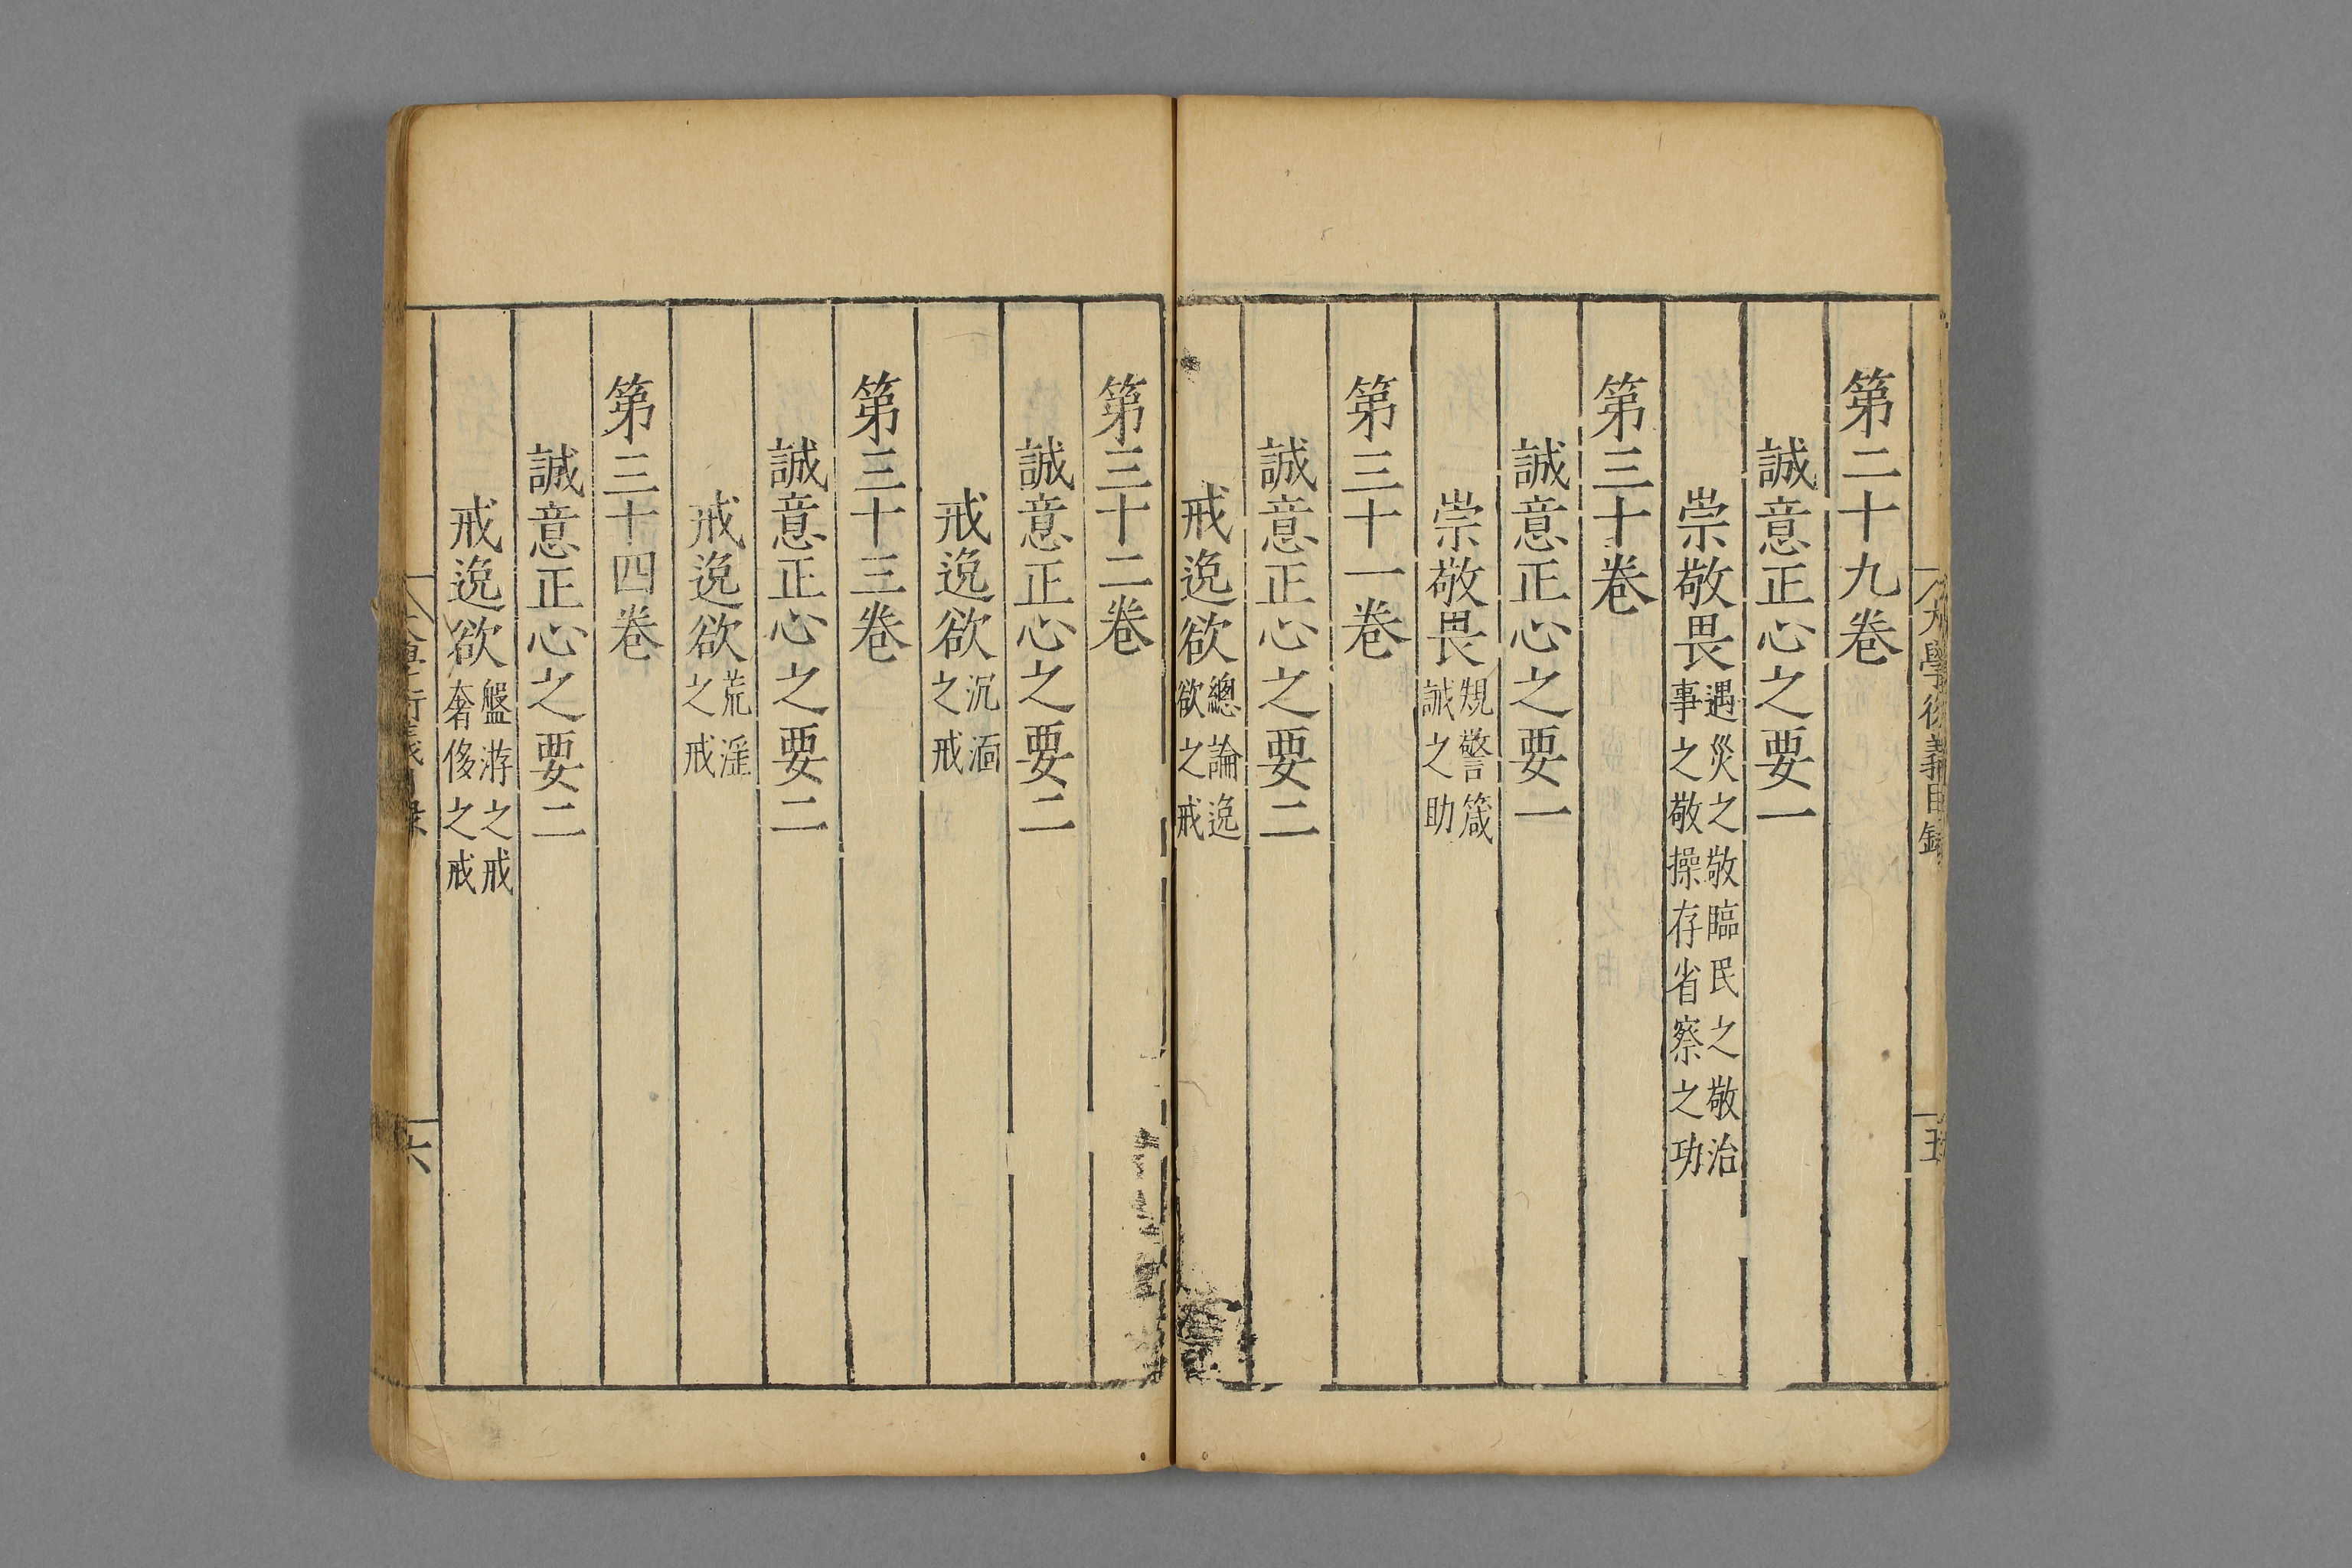 大學衍義目錄
五
第二十九卷
誠意正心之要一
崇敬畏遇災之敬臨民之敬治
事之敬操存省察之功
第三十卷
誠意正心之要一
崇敬畏規警箴
誡之助
第三十一卷
誠意正心之要二
戒逸欲總論逸
欲之戒
第三十二卷
誠意正心之要二
戒逸欲沉湎
之戒
第三十三卷
誠意正心之要二
戒逸欲荒淫
之戒
第三十四卷
誠意正心之要二
戒逸欲盤游之戒
奢侈之戒
六